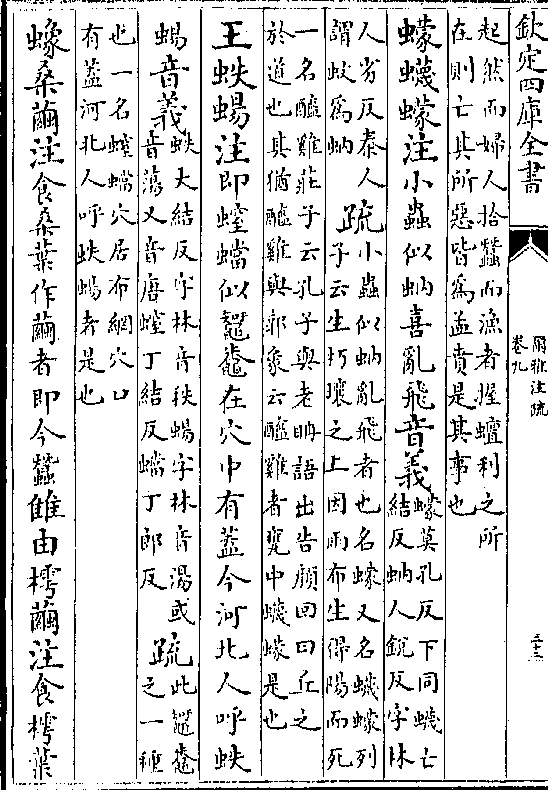 欽定四庫全書
爾雅注疏
卷九
三十三
起然而婦人拾蠶而漁者握鱣利之所
在則亡其所惡皆為孟賁是其事也
蠓蠛蠓注小蟲似蚋喜亂飛音義蠓莫孔反下同蠛亡
結反蚋人銳反字林
人劣反秦人
謂蚊為蚋
疏小蟲似蚋亂飛者也名蠓又名蠛蠓列
子云生朽壤之上因雨布生得陽而死
一名醯雞莊子云孔子與老聃語出告顔回曰丘之
於道也其猶醯雞與郭象云醯雞者甕中蠛蠓是也
王蛈蝪注即螲蟷似鼅鼄在穴中有蓋今河北人呼蛈
蝪音義蛈大結反字林音秩蝪字林音湯或
音蕩又音唐螲丁結反蟷丁郎反
疏此鼅鼄
之一種
也一名螲蟷穴居布網穴口
有蓋河北人呼蛈蝪者是也
蟓桑繭注食桑葉作繭者即今蠶雔由樗繭注食樗葉